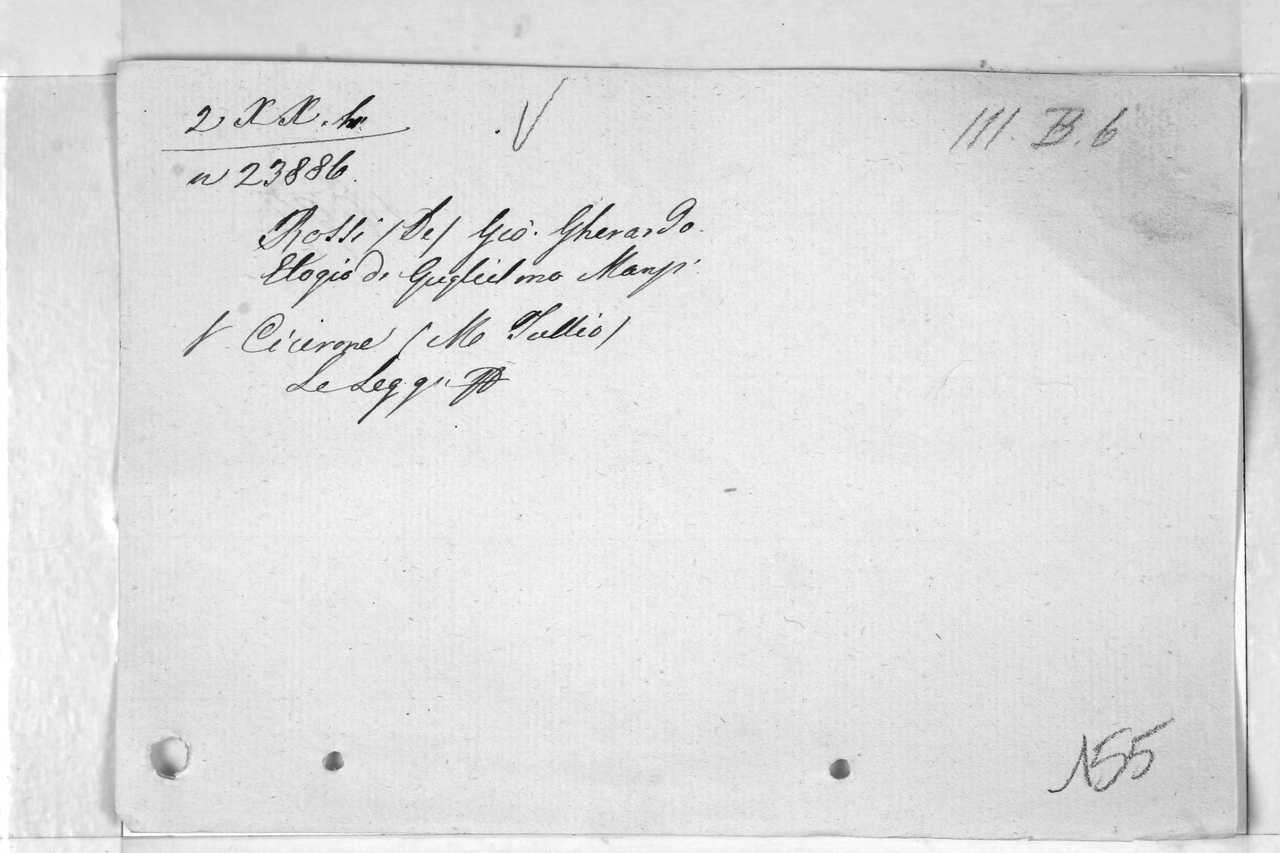 2 X X. h
III. B. 6
n 23886.
Rossi (De) Gio. Gherardo
Elogio di Guglielmo Manzi
V Cicerone (M. Tullio)
Le Leggi
155